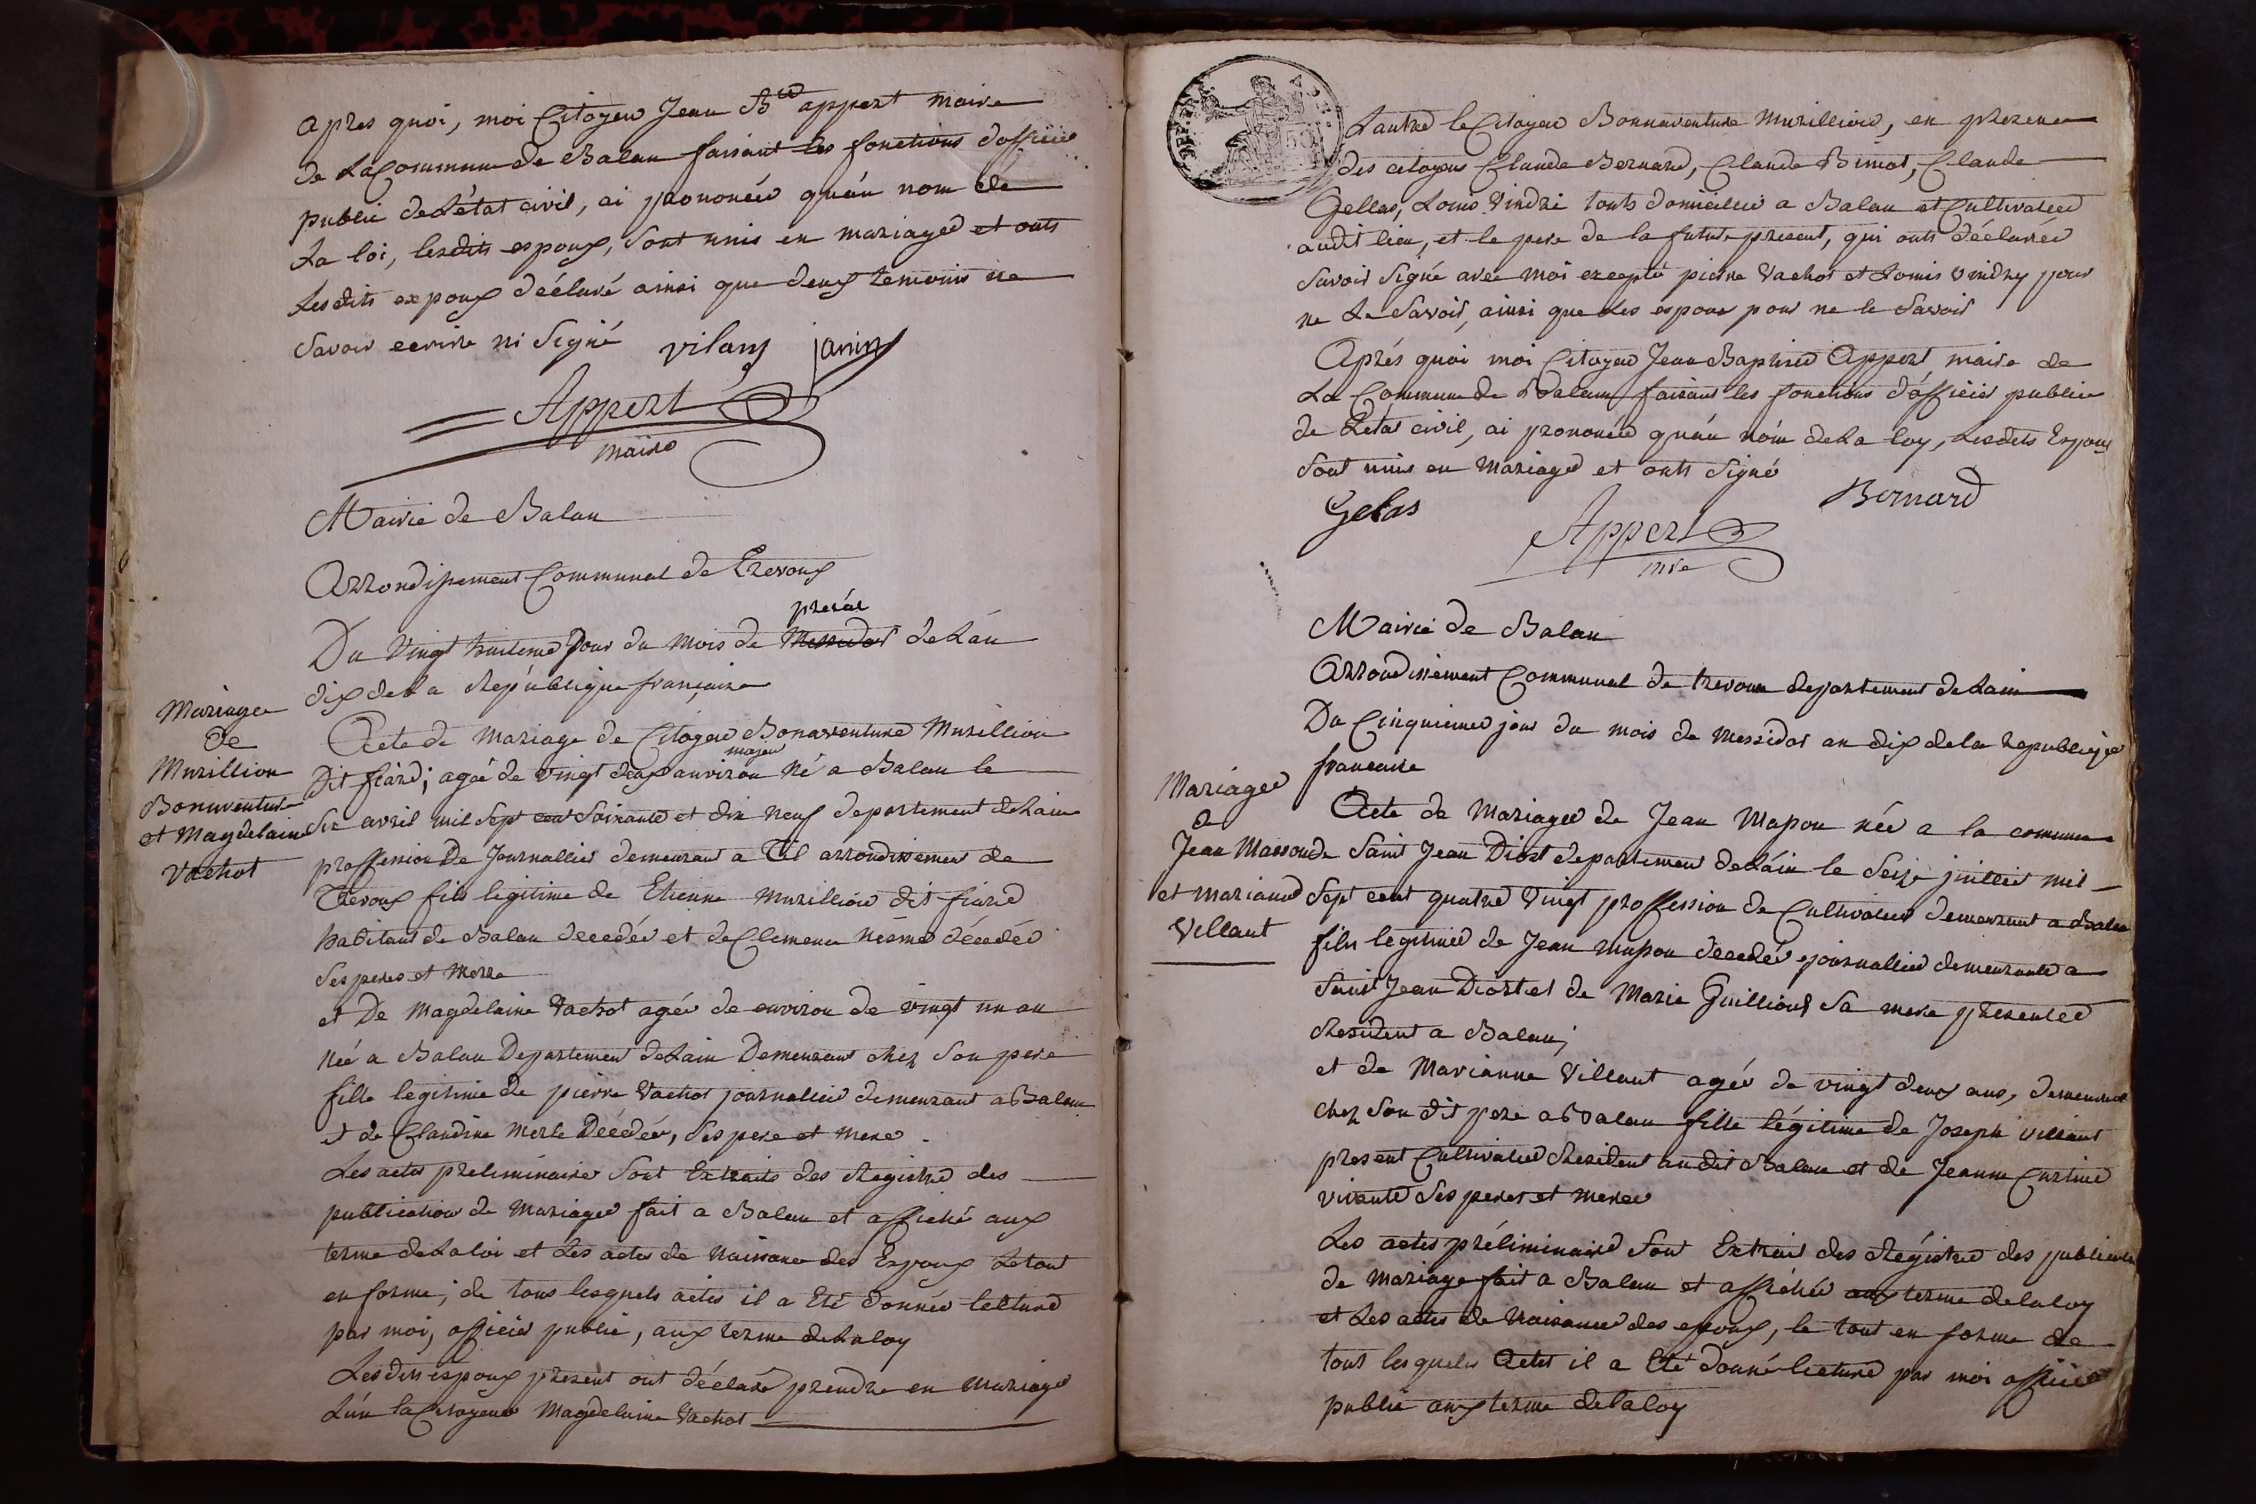 apres quoi, moi Citoyen Jean Bte appert maire
de La Commune de Balan faisant les fonctions dofficier
public de Létat civil, ai prononcée quáu nom de
La loi, lesdits espoux, sont unis en mariage et onts
Lesdits expoux déclaré ainsi que deux temoins ne
Savoir ecrire ni Signé vilang janin
Appert
maire
Mairie de Balan
Arrondissement Communal de Trevoux
prerial
Du Vingt huitieme Jour du mois de Messidor de Lán
dix de La République française
Mariage
de
Murillion
Bonaventure
et Magdelaine
Vachot
Acte de Mariage de Citoyen Bonaventure Murillion
majeur
Dit fiard; agée de vingt deux anviron Né a Balan le
Six avril mil Sept cent Soixante et dix neuf departement de Lain
proffession De Journallier demeurant a Til arrondissement de
Trevoux fils legitime de Etienne Murillion dit fiard
habitant de Balan decedée et de Clemence décedée
Ses peres et Merre
et De Magdelaine Vachot agée de environ de vingt un an
Née a Balan Departement de Lain Demeurant chez Son pere
fille legitime de pierre Vachot journallier demeurant a Balan
et de Claudine Merle Décédée, Ses pere et mere .
Les actes preliminaire Sont Extraits des Registre des
publication de Mariage fait a Balan et affiché aux
terme de La loi et Les actes de Naissance des Expoux Le tout
en forme; de tous lesquels actes il a Eté donnée lecture
par moi, officier public, aux terme de La loy
Lesdits expoux present ont déclaré prendre en Mariage
Lún la Citoyenne Magdelaine Vachot
Lautre le Citoyen Bonnaventure Murillion, en presence
des citoyens Claude Bernard, Claude Binot, Claude
Gellas, Louis Vindri touts domicillié a Balan et Cultivateur
audit lieu, et le pere de la future present, qui onts déclarée
Savoir Signé avec moi excepté pierre Vachot et Louis vindry pour
ne Le Savoir, ainsi que Les espoux pour ne le Savoir
Aprés quoi moi Citoyen Jean Baptiste Appert maire de
La Commune de Balan faisant les fonctions dófficier public
de Létat civil, ai prononcée quáu nóm de La loy, Lesdits Expoux
Sont unis en Mariage et onts Signé
Gelas Bernard
Appert
mre
Mairie de Balan
Arrondissement Communal de trevoux departement de Lain
Du Cinquieme jour du mois de Messidor an dix de la Republique
francaise
Mariage
de
Jean Masson
et Mariane
Villant
Acte de Mariage de Jean Masson née a la commune
de Saint Jean Diort departement de Láin le Seize juillet mil
Sept cent quatre Vingt proffession de Cultivateur demeurant a Balan
fils legitime de Jean Masson decedée journallier demeurante a
Saint Jean Diort et de Marie Guilliont Sa mere presente
Resident a Balan;
et de Marianne Villant agée de vingt deux ans, demeurant
chez Son dit pere a Balan fille légitime de Joseph villant
present Cultivateur Resident audit Balan et de Jeanne Curtine
vivante Ses peres et Mere
Les actes préliminaire Sont Extrait des Régistre des publication
de Mariage fait a Balan et affichée aux terme de la loy
et Les actes de Naissance des expoux, le tout en forme de
tous lesquels Actes il a Eté donné lecture par moi officier
public aux terme de la loy